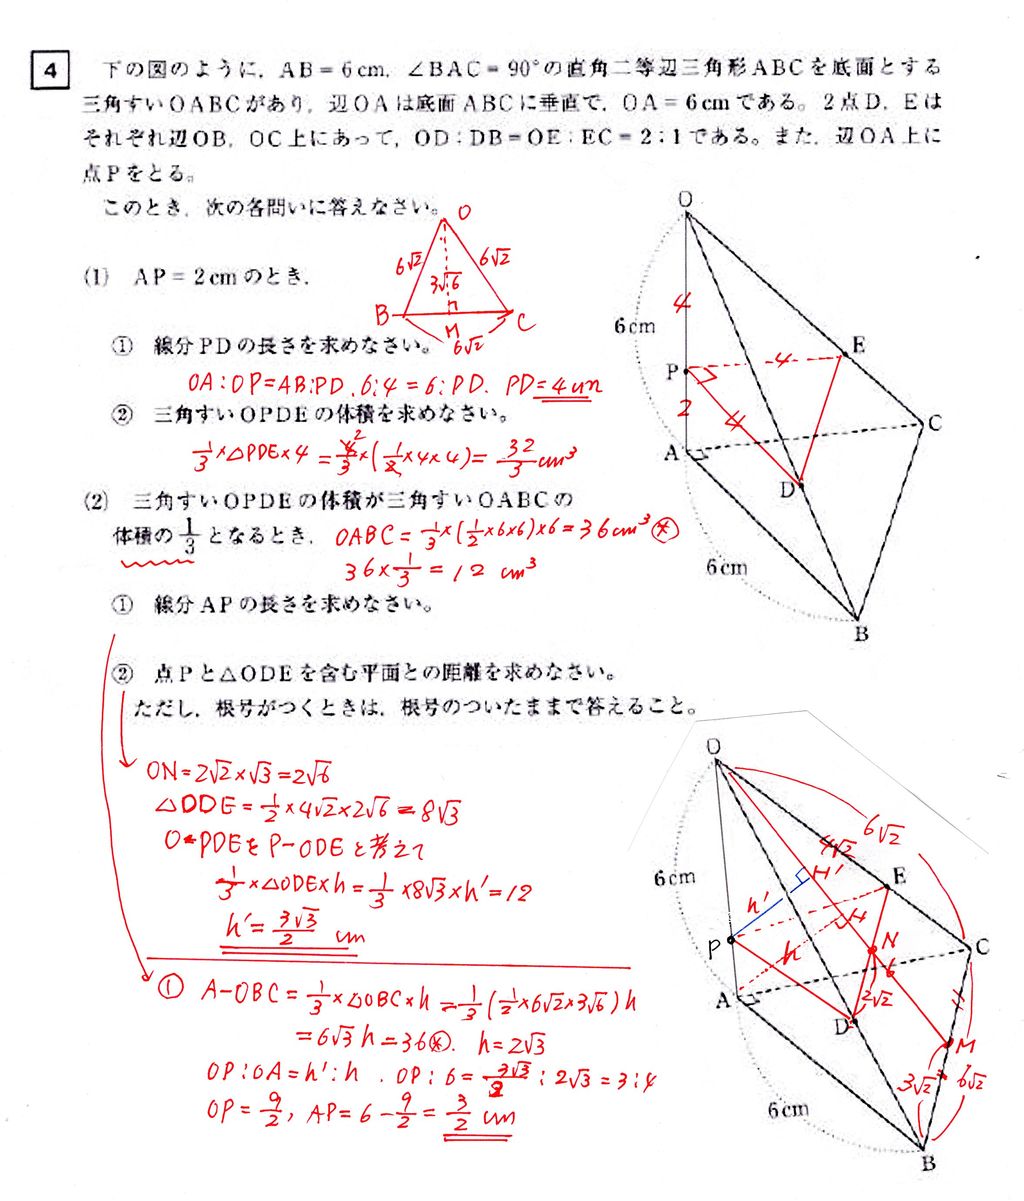 4 下の図のように，AB＝6cm，∠BAC＝90°の直角二等辺三角形ABCを底面とする
三角すいOABCがあり，辺OAは底面ABCに垂直で，OA＝6cmである。2点D，Eは
それぞれ辺OB，OC上にあって，OD：DB＝OE：EC＝2：1である。また，辺OA上に
点Pをとる。
このとき，次の各問いに答えなさい。
O
6√2 6√2
3√6
B C
M
6√2
(1) AP＝2cmのとき，
① 線分PDの長さを求めなさい。
OA:OP=AB:PD. 6:4=6:PD. PD=4cm
② 三角すいOPDEの体積を求めなさい。
1/3×△PDE×4=4/3×(1/2×4×4)=32/3cm³
2
(2) 三角すいOPDEの体積が三角すいOABCの
体積の1/3となるとき，
OABC=1/3×(1/2×6×6)×6=36cm³ ※
36×1/3=12 cm³
① 線分APの長さを求めなさい。
② 点Pと△ODEを含む平面との距離を求めなさい。
ただし，根号がつくときは，根号のついたままで答えること。
O
4
6cm
E
4
P
2
4
C
A
D
6cm
B
ON=2√2×√3=2√6
△ODE=1/2×4√2×2√6=8√3
O-PDEをP-ODEと考えて
1/3×△ODE×h=1/3×8√3×h'=12
h'=3√3/2 cm
① A-OBC=1/3×△OBC×h=1/3(1/2×6√2×3√6)h
=6√3h=36※. h=2√3
OP:OA=h':h. OP:6=3√3/2:2√3=3:4
OP=9/2, AP=6-9/2=3/2 cm
O
6√2
4√2
6cm
H'
E
h'
H
P
N
C
h
6
A
2√2
D
M
3√2
6√2
6cm
B